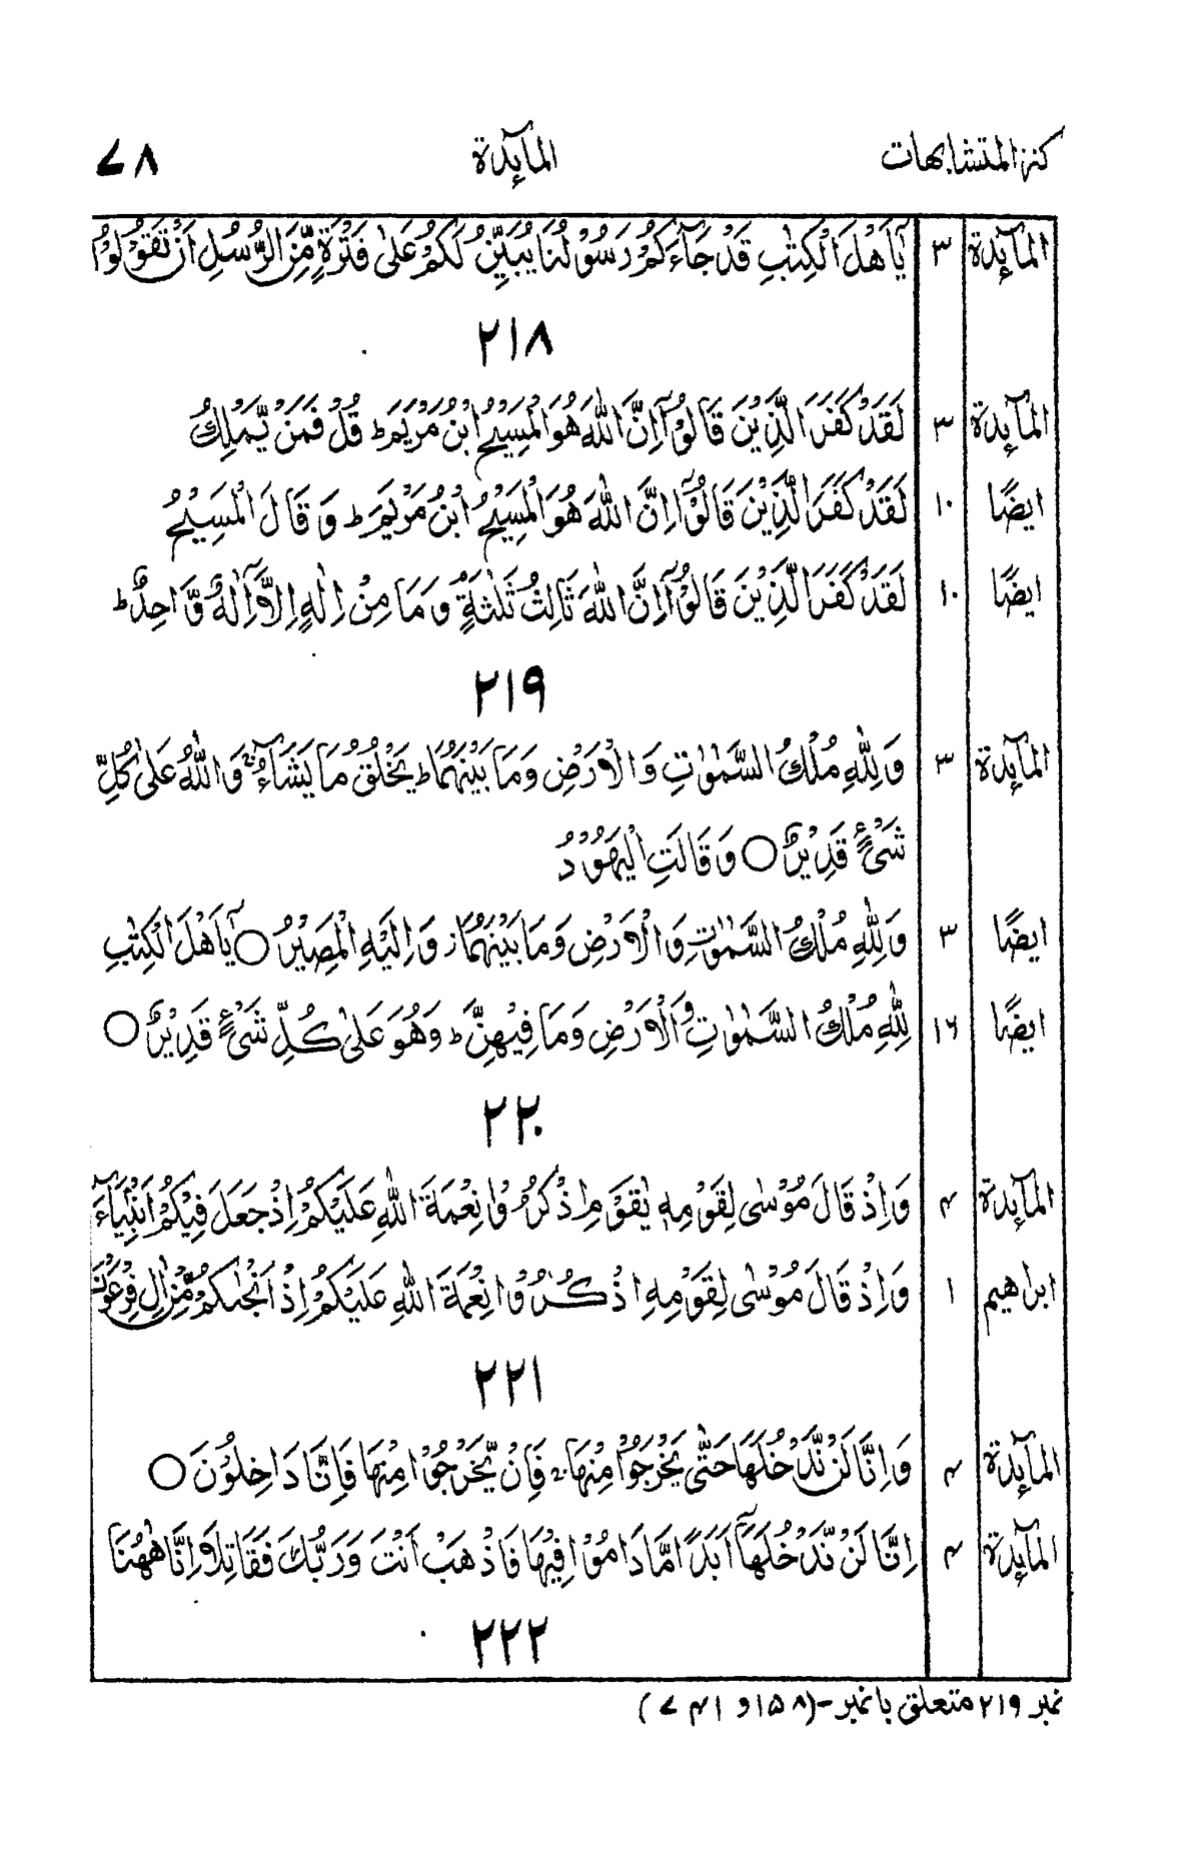 كنز المتشابهات المآئدة ۷۸
المآئدة ۳ يٰٓاَهْلَ الْكِتٰبِ قَدْ جَآءَكُمْ رَسُوْلُنَا يُبَيِّنُ لَكُمْ عَلٰى فَتْرَةٍ مِّنَ الرُّسُلِ اَنْ تَقُوْلُوْا
۲۱۸
المآئدة ۳ لَقَدْ كَفَرَ الَّذِيْنَ قَالُوْٓا اِنَّ اللّٰهَ هُوَ الْمَسِيْحُ ابْنُ مَرْيَمَ ط قُلْ فَمَنْ يَّمْلِكُ
ايضًا ۱۰ لَقَدْ كَفَرَ الَّذِيْنَ قَالُوْٓا اِنَّ اللّٰهَ هُوَ الْمَسِيْحُ ابْنُ مَرْيَمَ ط وَقَالَ الْمَسِيْحُ
ايضًا ۱۰ لَقَدْ كَفَرَ الَّذِيْنَ قَالُوْٓا اِنَّ اللّٰهَ ثَالِثُ ثَلٰثَةٍ ۘ وَمَا مِنْ اِلٰهٍ اِلَّآ اِلٰهٌ وَّاحِدٌ ط
۲۱۹
المآئدة ۳ وَلِلّٰهِ مُلْكُ السَّمٰوٰتِ وَالْاَرْضِ وَمَا بَيْنَهُمَا ط يَخْلُقُ مَا يَشَآءُ ط وَاللّٰهُ عَلٰى كُلِّ
شَيْءٍ قَدِيْرٌ ○ وَقَالَتِ الْيَهُوْدُ
ايضًا ۳ وَلِلّٰهِ مُلْكُ السَّمٰوٰتِ وَالْاَرْضِ وَمَا بَيْنَهُمَا ز وَاِلَيْهِ الْمَصِيْرُ ○ يٰٓاَهْلَ الْكِتٰبِ
ايضًا ۱۶ لِلّٰهِ مُلْكُ السَّمٰوٰتِ وَالْاَرْضِ وَمَا فِيْهِنَّ ط وَهُوَ عَلٰى كُلِّ شَيْءٍ قَدِيْرٌ ○
۲۲۰
المآئدة ۴ وَاِذْ قَالَ مُوْسٰى لِقَوْمِهٖ يٰقَوْمِ اذْكُرُوْا نِعْمَةَ اللّٰهِ عَلَيْكُمْ اِذْ جَعَلَ فِيْكُمْ اَنْۢبِيَآءَ
ابراهيم ۱ وَاِذْ قَالَ مُوْسٰى لِقَوْمِهِ اذْكُرُوْا نِعْمَةَ اللّٰهِ عَلَيْكُمْ اِذْ اَنْجٰىكُمْ مِّنْ اٰلِ فِرْعَوْنَ
۲۲۱
المآئدة ۴ وَاِنَّا لَنْ نَّدْخُلَهَا حَتّٰى يَخْرُجُوْا مِنْهَا ج فَاِنْ يَّخْرُجُوْا مِنْهَا فَاِنَّا دَاخِلُوْنَ ○
المآئدة ۴ اِنَّا لَنْ نَّدْخُلَهَآ اَبَدًا مَّا دَامُوْا فِيْهَا فَاذْهَبْ اَنْتَ وَرَبُّكَ فَقَاتِلَآ اِنَّا هٰهُنَا
۲۲۲
نمبر ۲۱۹ متعلق با نمبر-(۱۵۸ و ۷۴۱)